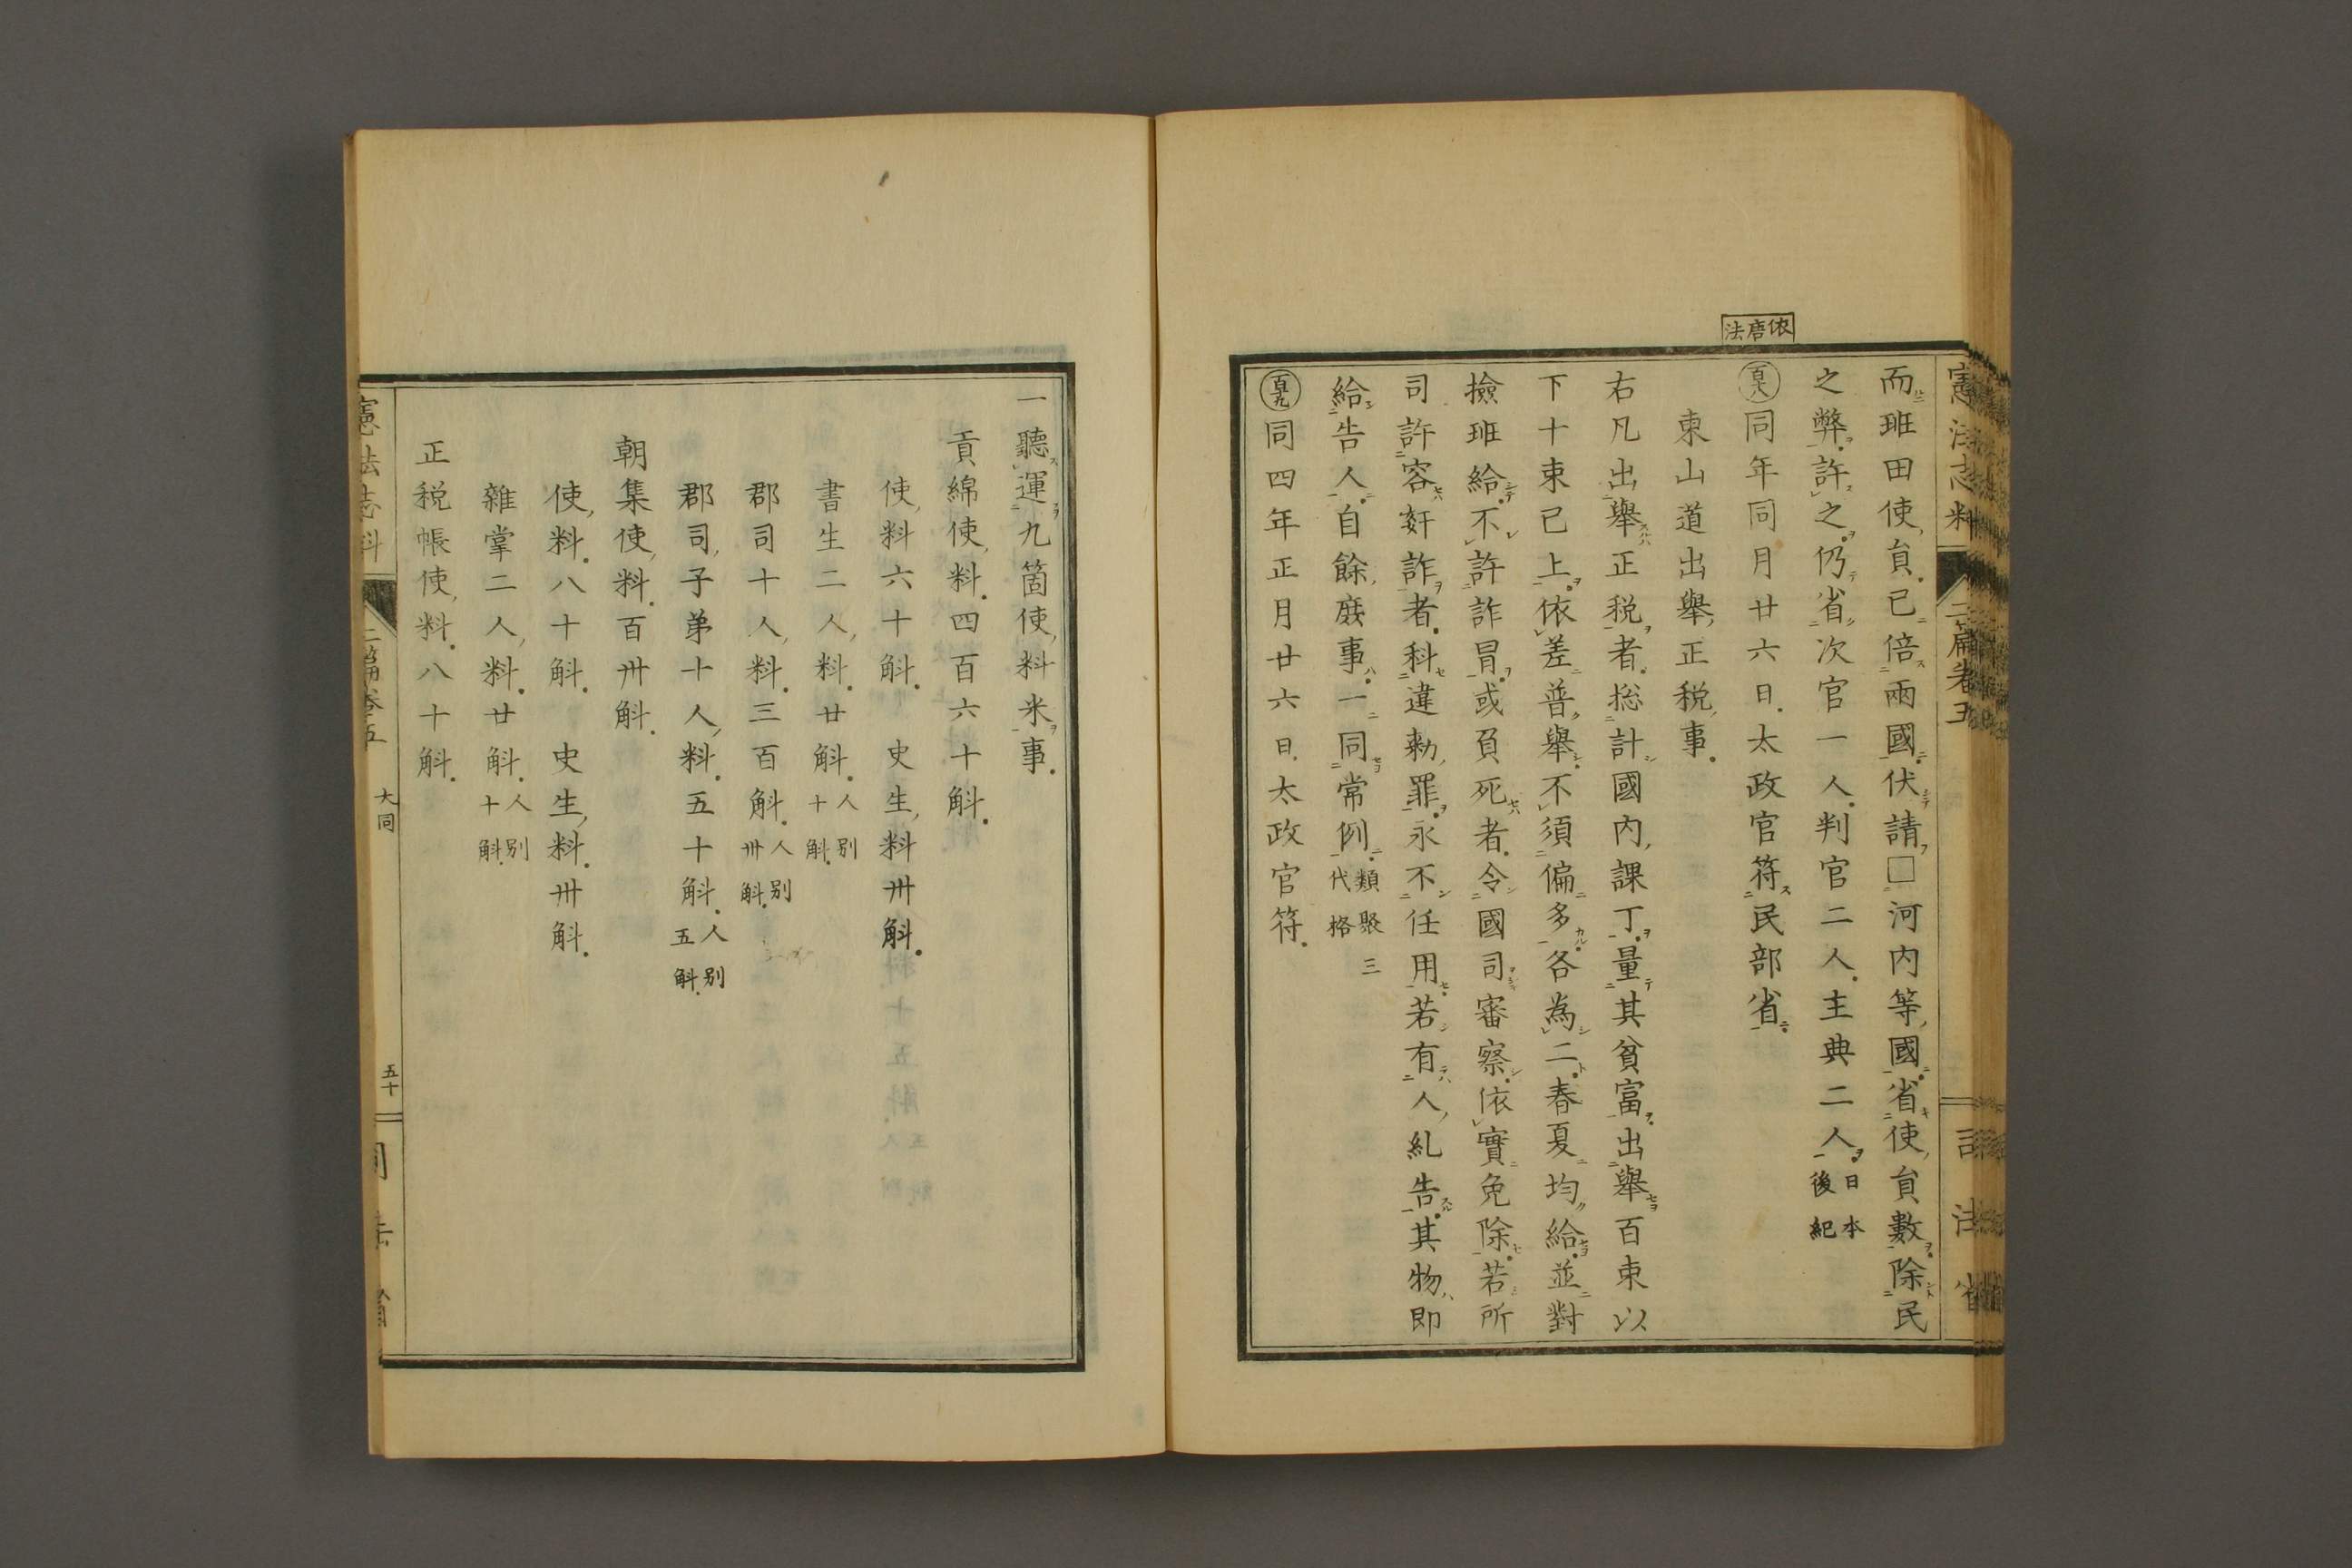 憲法志料
二篇卷五
司法省
而班田使員已倍兩國伏請□河内等國省使員數除民
之弊許之仍省次官一人判官二人主典二人日本後紀
依唐法
同年同月廿六日太政官符民部省
東山道出舉正税事
右凡出舉正税者捴計國内課丁量其貧富出舉百束以
下十束已上依差普舉不須偏多各為二春夏均給並對
撿班給不許詐冒或負死者令國司審察依實免除若所
司許容姧詐者科違勅罪永不任用若有人糺告其物即
給告人自餘庶事一同常例類聚三代格
百九同四年正月廿六日太政官符
一聽運九箇使料米事
貢綿使料四百六十斛
使料六十斛　史生料卅斛
書生二人料廿斛人別十斛
郡司十人料三百斛人別卅斛
郡司子弟十人料五十斛人別五斛
朝集使料百卅斛
使料八十斛　史生料卅斛
雜掌二人料廿斛人別十斛
正税帳使料八十斛
憲法志料
二篇卷五
大同
五十